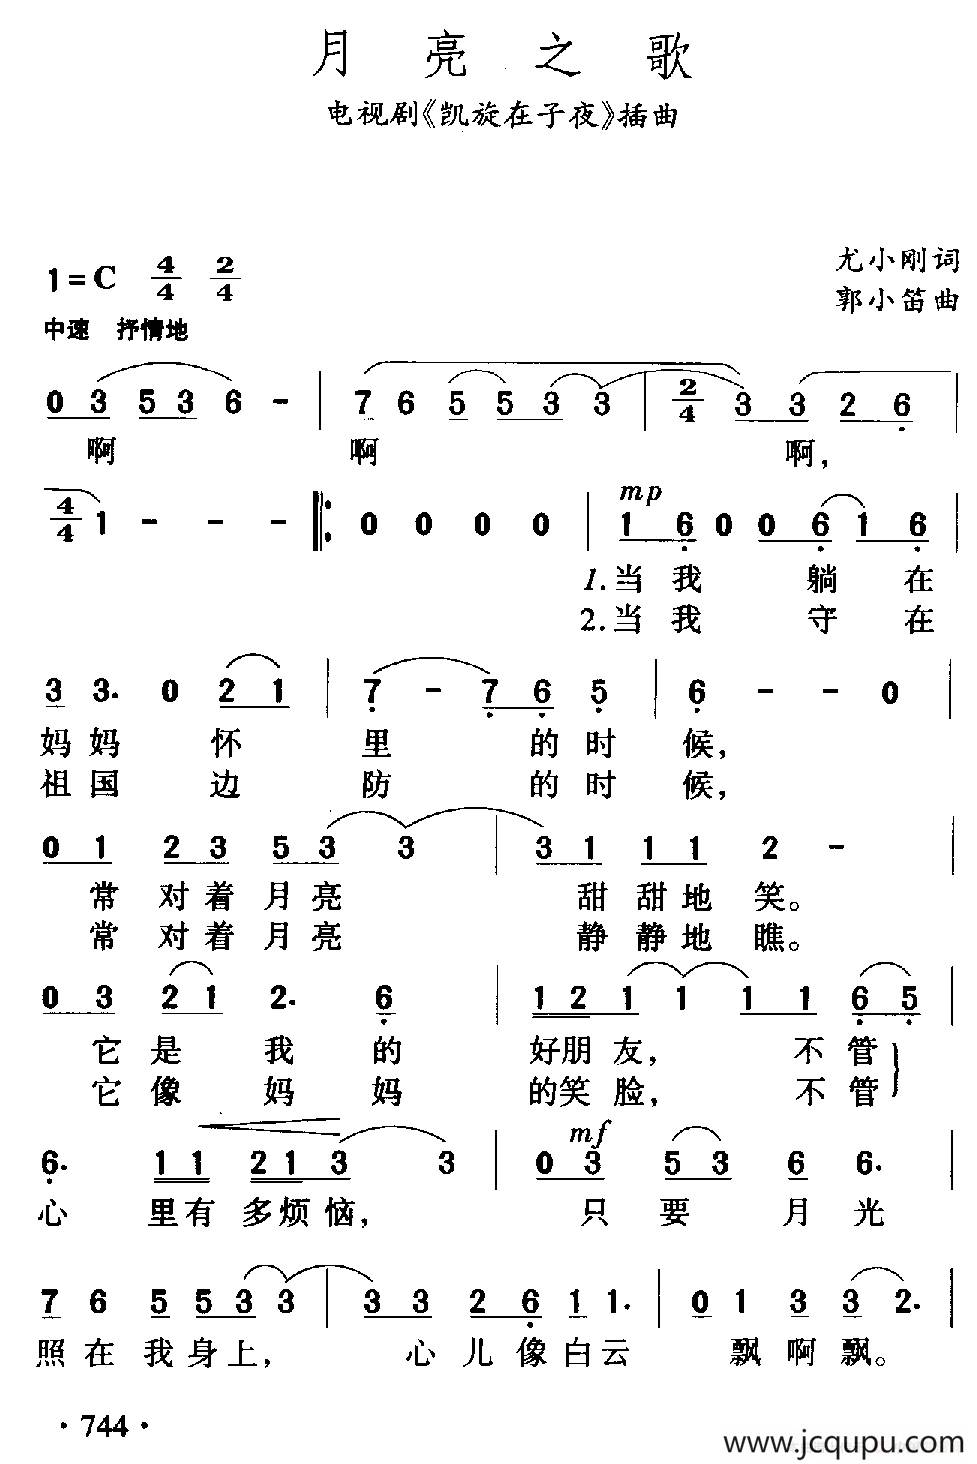 月亮之歌
电视剧《凯旋在子夜》插曲
尤小刚词
1=C 4/4 2/4
郭小笛曲
中速 抒情地
0 3 5 3 6 - | 7 6 5 5 3 3 | 2/4 3 3 2 6 |
啊 啊 啊,
mp
4/4 1 - - - ‖: 0 0 0 0 | 1 6 0 0 6 1 6 |
1.当我 躺 在
2.当我 守 在
3 3. 0 2 1 | 7 - 7 6 5 | 6 - - 0
妈妈 怀 里 的时 候,
祖国 边 防 的时 候,
0 1 2 3 5 3 3 | 3 1 1 1 2 - |
常 对着月亮 甜 甜地 笑。
常 对着月亮 静 静地 瞧。
0 3 2 1 2. 6 | 1 2 1 1 1 1 6 5 |
它 是 我 的 好朋友, 不管
它 像 妈 妈 的笑脸, 不管
mf
6. 1 1 2 1 3 3 | 0 3 5 3 6 6. |
心 里有多烦恼, 只 要 月 光
7 6 5 5 3 3 | 3 3 2 6 1 1. | 0 1 3 3 2. |
照在我身上, 心儿像白云 飘啊飘。
·744·
www.jcqupu.com